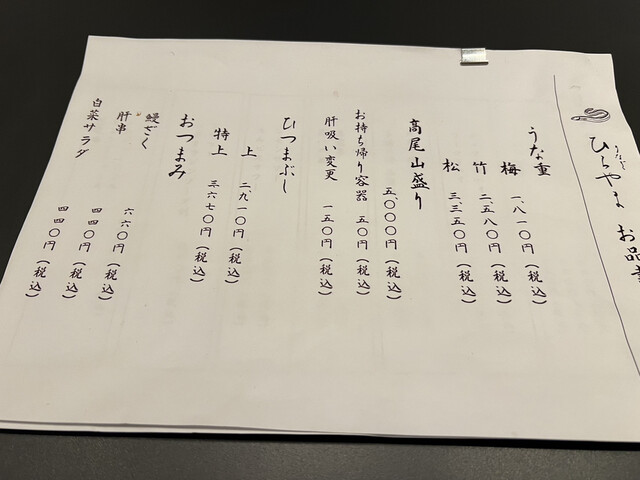 うなぎ
ひらやま お品書
うな重
梅 一、八一〇円(税込)
竹 二、五八〇円(税込)
松 三、三五〇円(税込)
高尾山盛り
五、〇〇〇円(税込)
お持ち帰り容器 五〇円(税込)
肝吸い変更 一五〇円(税込)
ひつまぶし
上 二、九一〇円(税込)
特上 三、六七〇円(税込)
おつまみ
鰻ざく 六六〇円(税込)
肝串 四四〇円(税込)
白菜サラダ 四四〇円(税込)